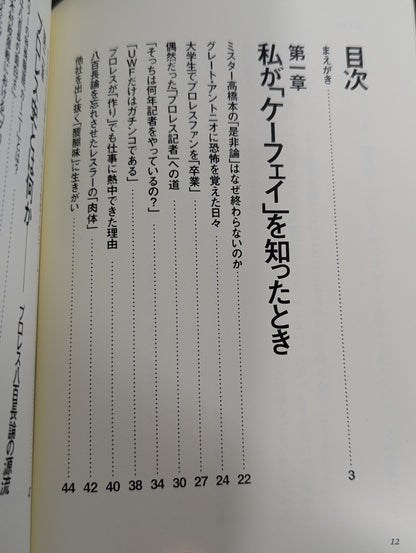 目次
まえがき 3
第一章
私が「ケーフェイ」を知ったとき
ミスター高橋本の「是非論」はなぜ終わらないのか 22
グレート・アントニオに恐怖を覚えた日々 24
大学生でプロレスファンを「卒業」 27
偶然だった「プロレス記者」への道 30
「そっちは何年記者をやっているの?」 34
「UWFだけはガチンコである」 38
プロレスが「作り」でも仕事に熱中できた理由 40
八百長論を忘れさせたレスラーの「肉体」 42
他社を出し抜く「醍醐味」に生きがい 44
12